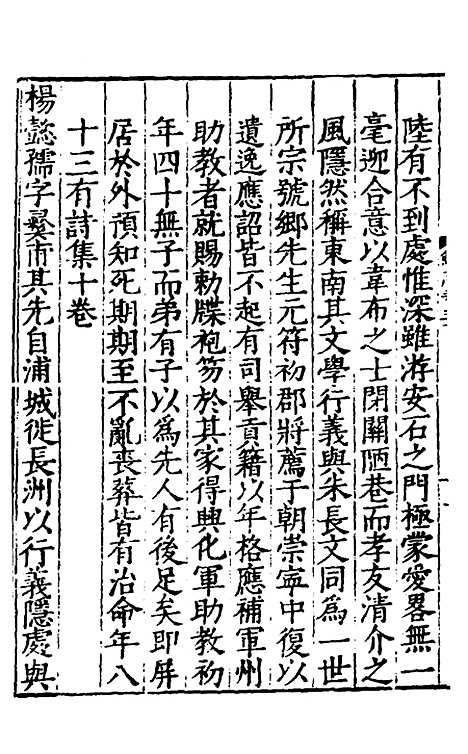 陸有不到處惟深雖游安石之門極蒙愛畧無一
毫迎合意以韋布之士閉關陋巷而孝友清介之
風隱然稱東南其文學行義與朱長文同爲一世
所宗號鄉先生元符初郡將薦于朝崇寧中復以
遺逸應詔皆不起有司舉貢籍以年格應補軍州
助教者就賜勅牒袍笏於其家得興化軍助教初
年四十無子而弟有子以爲先人有後足矣即屏
居於外預知死期期至不亂喪葬皆有治命年八
十三有詩集十卷
楊懿孺字彛市其先自浦城徙長洲以行義隱處與